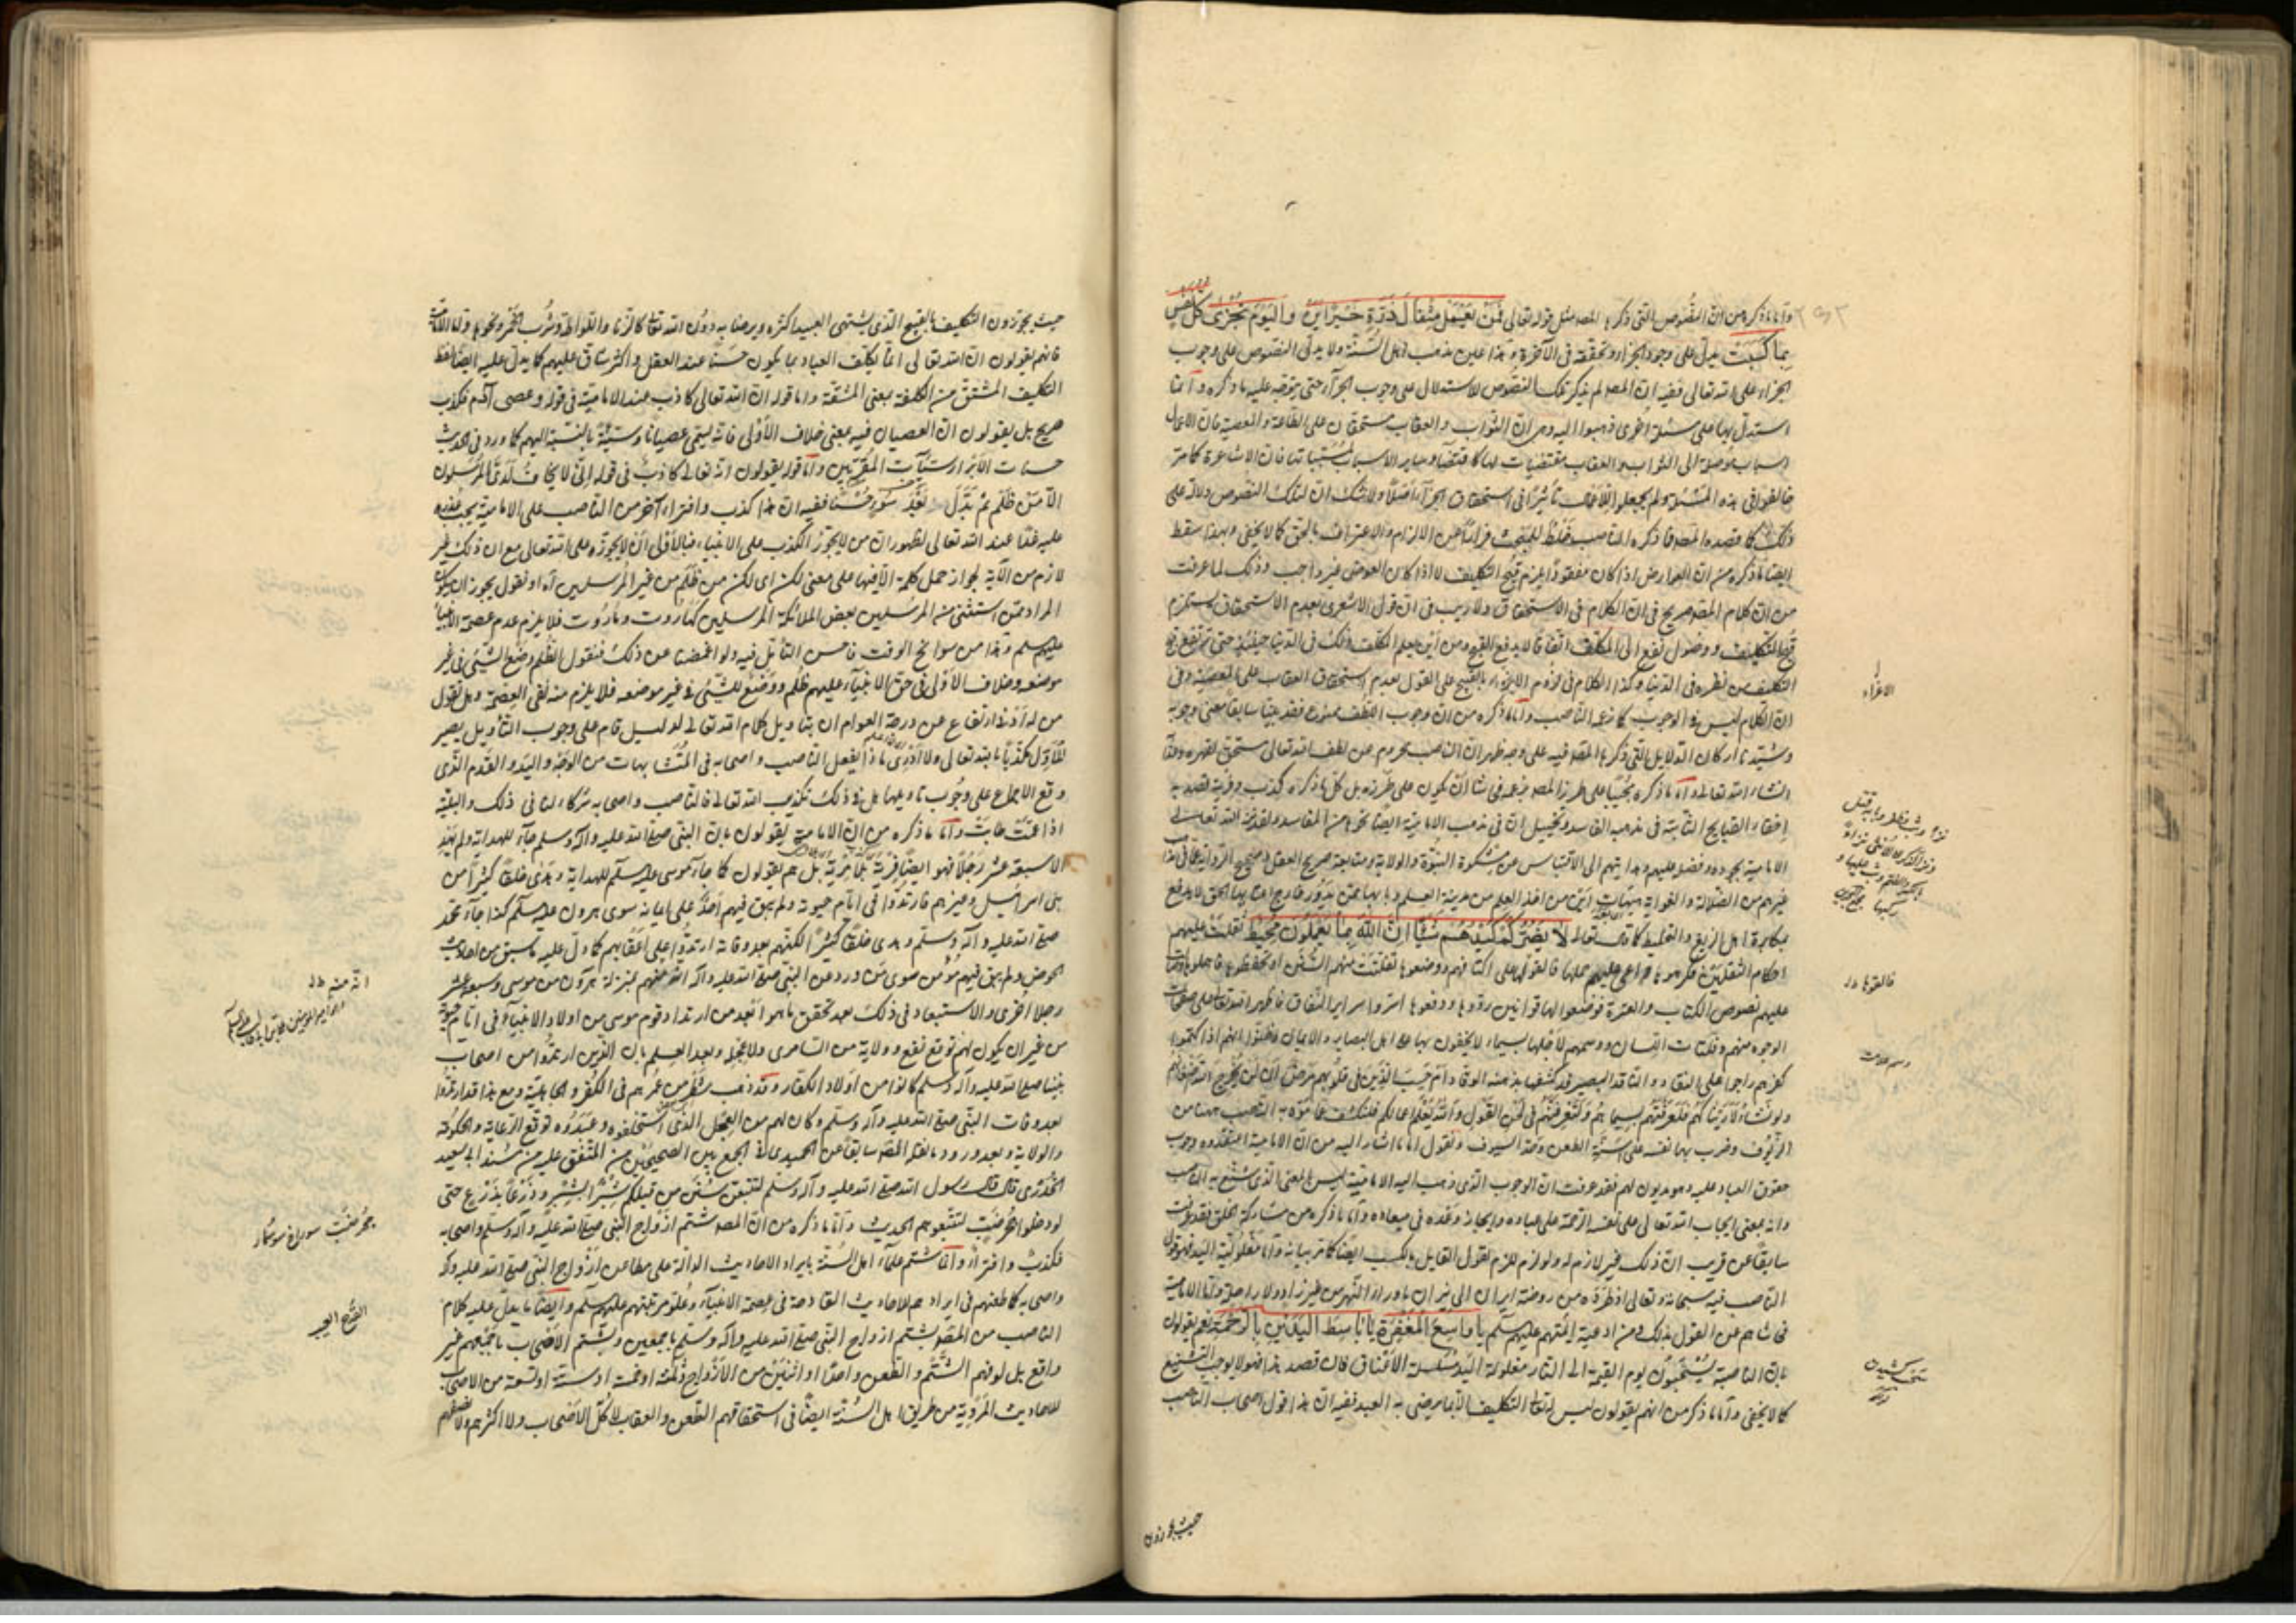 واما ما ذكره من ان النصوص التي ذكرها المصه مثل قوله تعالى فمن يعمل مثقال ذرة خيرا يره واليوم تجزى كل نفس
بما كسبت يدل على وجود الجزاء وتحققه في الآخرة وهذا عين مذهب اهل السنة ولا يدل النصوص على وجوب
الجزاء على الله تعالى ففيه ان المصه لم يذكر تلك النصوص للاستدلال على وجوب الجزاء حتى يتوجه عليه ما ذكره وانما
استدل بها على مسئلة اخرى ذهبوا اليه وهي ان الثواب والعقاب مستحقان على الطاعة والمعصية فان الاعمال
اسباب موصلة الى الثواب والعقاب مقتضيات لها كاقتضاء ساير الاسباب لمسبباتها فان الاشاعرة كما مر
خالفوا في هذه المسئلة ولم يجعلوا للاعمال تأثيرا في استحقاق الجزاء اصلا ولا شك ان لتلك النصوص دلالة على
ذلك كما قصده المصه فما ذكره الناصب خلط للمبحث فرارا عن الالزام والاعتراف بالحق كما لا يخفى وبهذا سقط
ايضا ما ذكره من ان العوارض اذا كان مفقودا يلزم قبح التكليف لا اذا كان العوض غير واجب وذلك لما عرفت
من ان كلام المصه صريح في ان الكلام في الاستحقاق ولا ريب في ان قول الاشعري بعدم الاستحقاق يستلزم
قبح التكليف ووصول نفع الى المكلف اتفاقا لا يدفع القبح ومن اين يعلم المكلف ذلك في الدنيا حينئذ حتى
التكليف من نظره في الدنيا وكذا الكلام في لزوم الاغراء بالقبيح على القول بعدم استحقاق العقاب على المعصية وفي
ان الكلام ليس في الوجوب كما زعمه الناصب واما ما ذكره من ان وجوب اللطف ممنوع فقد بينا سابقا معنى وجوبه
وشيدنا اركان الدلايل التي ذكرها المصه فيه على وجه ظهر ان الناصب محروم عن لطف الله تعالى مستحق لقهره
انشاء الله تعالى واما ما ذكره مجيبا على طرز المصه
اخفاء القبايح الثابتة في مذهبه الفاسد وتخييل ان في مذهب الامامية ايضا نحوا من المفاسد ولقد من الله تعالى على
الامامية بجوده وفضله عليهم وهدايتهم الى الاقتباس من مشكوة النبوة والولاية ومتابعة صريح العقل وصحيح الرواية
غيرهم من الضلالة والغواية هيهات اين من اخذ العلم من مدينة العلم وبابها ممن يدور خارج
مكابرة اهل الزيغ والتخليط كما قال تعالى لا يضركم كيدهم شيئا ان الله بما يعملون محيط ثقلت عليهم
احكام الثقلين فكرهوها عليهم حملها فالقوها على اكتافهم ووضعوها تفلتت منهم السنن ان تحفظوها فاحملوها
عليهم نصوص الكتاب والعترة فوضعوا لها قوانين ردوها ودفعوها اسروا سراير النفاق فاظهر الله تعالى على صفحات
الوجوه منهم وفلتات اللسان ووسمهم لاجلها بسيماء لا يخفون بها على اهل البصاير والايمان وظنوا انهم اذا كتموا
كفرهم راجوا على النقاد والناقد البصير قد كشفها بذهنه الوقاد ام حسب الذين في قلوبهم مرض ان لن يخرج الله اضغانهم
ولو نشاء لاريناكهم فلعرفتهم بسيماهم ولتعرفنهم في لحن القول والله يعلم اعمالكم فلنكشف عما موه به الناصب ههنا من
الزيوف وضرب بها نفسه على اسنة الطعن وحد السيوف ونقول اما ما اشار اليه من ان الامامية اعتقدوه وجوب
حقوق العباد عليه وهو مديون لهم فقد عرفت ان الوجوب الذي ذهب اليه الامامية ليس بالمعنى الذي شنع به الناصب
وانه بمعنى ايجاب الله تعالى على نفسه الرحمة على عباده وانجاز وعده في ميعاده واما ما ذكره من مشاركة الخلق
سابقا عن قريب ان ذلك غير لازم له ولو لزم للزم لقول القايل بالكسب ايضا كما مر بيانه واما مغلولية اليد فهو قول
الناصب فيه سبحانه وتعالى اذ طرده من روضة ايران الى نيران ما وراء النهر من غير زاد ولا راحلة واما الامامية
فحاشاهم عن القول بذلك ومن ادعية ائمتهم عليهم سلم يا واسع المغفرة يا باسط اليدين بالرحمة نعم يقولون
بان الناصبة يسحبون يوم القيمة الى النار مغلولة اليد مسلسلة الاعناق فان قصد هذا فهو لا يوجب التشنيع
كما لا يخفى واما ما ذكر من انهم يقولون ليس له تعالى التكليف الا بما يرضى به العبد ففيه ان هذا قول اصحاب الناصب
الاغراء
فالقوها
وسم علامت
حيث يجوزون
حيث يجوزون التكليف بالقبيح الذي يشتهي العبيد اكثره ويرضنا به دون الله تعالى كالزنا واللواطة وشرب الخمر ونحوها واما الامامية
فانهم يقولون ان الله تعالى انما يكلف العباد بما يكون حسنا عند العقل واكثره شاق عليهم كما يدل عليه ايضا لفظ
التكليف المشتق من الكلفة بمعنى المشقة واما قوله ان الله تعالى كاذب عند الامامية في قوله وعصى آدم فكذب
صريح بل يقولون ان العصيان فيه بمعنى خلاف الاولى فانه يسمى عصيانا وسيئة بالنسبة اليهم كما ورد في الحديث
حسنات الابرار سيئات المقربين واما قوله يقولون انه تعالى كاذب في قوله اني لا يخاف لدي المرسلون
الا من ظلم ثم بدل حسنا بعد سوء ففيه ان هذا كذب وافتراء آخر من الناصب على الامامية
عند الله تعالى لظهور ان من لا يجوز الكذب على الانبياء فبالاولى ان لا يجوزه على الله تعالى مع ان ذلك غير
لازم من الآية لجواز حمل كلمة الا فيها على معنى لكن اى لكن من ظلم من غير المرسلين آه او نقول يجوز ان يكون
المراد ممن استثنى من المرسلين بعض الملائكة المرسلين كهاروت وماروت فلا يلزم عدم عصمة الانبياء
عليهم سلم وهذا من سوانح الوقت فاحسن التأمل فيه ولو اغمضنا عن ذلك فنقول الظلم وضع الشئ في غير
موضعه وخلاف الاولى في حق الانبياء عليهم ظلم ووضع للشئ في غير موضعه فلا يلزم منه نفى العصمة وهل يقول
من له ادنى ارتفاع عن درجة العوام ان بتاويل كلام الله تعالى لدليل قام على وجوب التأويل يصير
المأول مكذبا بالله تعالى ولا ادرى ماذا يفعل الناصب واصحابه في المتشابهات من الوجه واليد والقدم الذي
وقع الاجماع على وجوب تاويلها هل في ذلك تكذيب الله تعالى فالناصب واصحابه شركاء لنا في ذلك والبلية
اذا عمت طابت واما ما ذكره من ان الامامية يقولون بان النبي صلى الله عليه وآله وسلم جاء للهداية ولم يهد
الا سبعة عشر رجلا فهو ايضا فرية بلا مرية بل هم يقولون كما جاء موسى عليه سلم للهداية وهدى خلقا كثيرا من
بني اسرائيل وغيرهم فارتدوا في ايام حيوته ولم يبق فيهم احد على ايمانه سوى هرون عليه سلم كذا جاء محمد
صلى الله عليه وآله وسلم وهدى خلقا كثيرا لكنهم بعد وفاته ارتدوا على اعقابهم كما دل عليه ما سبق من احاديث
الحوض ولم يبق فيهم مؤمن سوى من ورد عن النبي صلى الله عليه وآله انه منهم بمنزلة هرون من موسى وسبعة عشر
رجلا اخرى والاستبعاد في ذلك بعد تحقق ما هو ابعد من ارتداد قوم موسى من اولاد الانبياء في ايام حيوته
من غير ان يكون لهم توقع نفع وولاية من السامري ولا عجل وبعد العلم بان الذين ارتدوا من اصحاب
نبينا صلى الله عليه وآله وسلم كانوا من اولاد الكفار وقد ذهب شطر من عمرهم في الكفر والجاهلية ومع هذا قد ارتدوا
بعد وفات النبي صلى الله عليه وآله وسلم وكان لهم من العجل الذي استخلفوه وعبدوه توقع الرعاية والحكومة
والولاية وبعد ورود ما نقله المصه سابقا عن الحميدي في الجمع بين الصحيحين من المتفق عليه من مسند ابي سعيد
الخدري قال قال رسول الله صلى الله عليه وآله وسلم لتتبعن سنن من قبلكم شبرا بشبر وذراعا بذراع حتى
لو دخلوا جحر ضب لتبعتموهم الحديث واما ما ذكره من ان المصه شتم ازواج النبي صلى الله عليه وآله وسلم واصحابه
فكذب وافتراء وانما شتم علماء اهل السنة بايراد الاحاديث الدالة على مطاعن ازواج النبي صلى الله عليه وآله
واصحابه كما طعنهم في ايرادهم للاحاديث القادحة في عصمة الانبياء وعلو مرتبتهم عليهم سلم وايضا ما يدل عليه كلام
الناصب من المصه شتم ازواج النبي صلى الله عليه وآله وسلم باجمعهن وشتم الاصحاب باجمعهم غير
واقع بل لو فهم الشتم والطعن واحدا او اثنتين من الازواج وثلثة او خمسة او ستة او تسعة من الاصحاب
للاحاديث المروية من طريق اهل السنة ايضا في استحقاقهم الطعن والعقاب لا كل الاصحاب ولا اكثرهم
جحر ضب سوراخ سوسمار